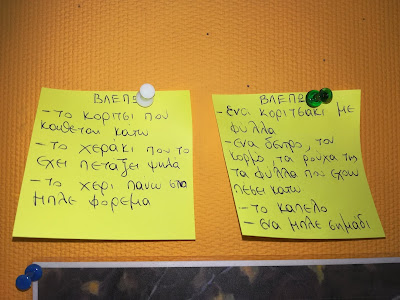 ΒΛΕΠΩ
- ΤΟ ΚΟΡΙΤΣΙ ΠΟΥ
ΚΑΘΕΤΑΙ ΚΑΤΩ
- ΤΟ ΧΕΡΑΚΙ ΠΟΥ ΤΟ
ΕΧΕΙ ΠΕΤΑΞΕΙ ΨΗΛΑ
- ΤΟ ΧΕΡΙ ΠΑΝΩ ΣΤΟ
ΜΠΛΕ ΦΟΡΕΜΑ
ΒΛΕΠΩ
- ΕΝΑ ΚΟΡΙΤΣΑΚΙ ΜΕ
ΦΥΛΛΑ
- ΕΝΑ ΔΕΝΤΡΟ, ΤΟΝ
ΚΟΡΜΟ, ΤΑ ΡΟΥΧΑ ΤΗΣ
ΤΑ ΦΥΛΛΑ ΠΟΥ ΕΧΟΥΝ
ΠΕΣΕΙ ΚΑΤΩ
- ΤΟ ΚΑΠΕΛΟ
- ΕΝΑ ΜΠΛΕ ΣΗΜΑΔΙ